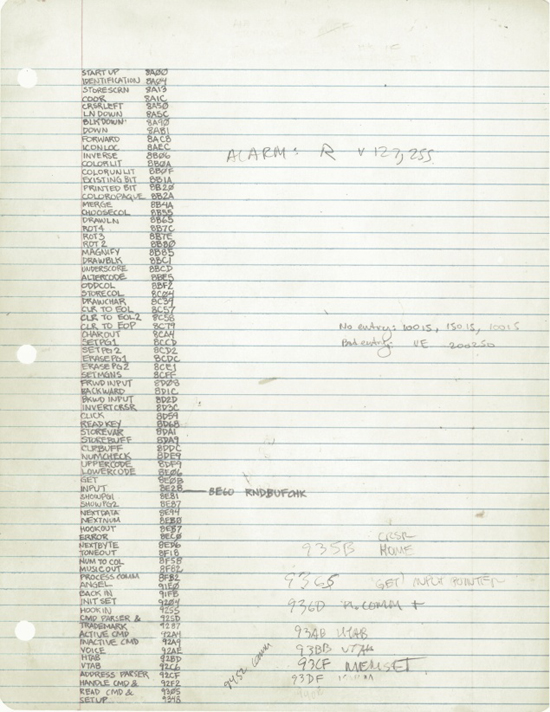 START UP 8A00
IDENTIFICATION 8A04
STORESCRN 8A13
COOR 8A1C
CRSRLEFT 8A50
LN DOWN 8A5C
BLKDOWN 8A90
DOWN 8AB1
FORWARD 8AC8
ICONLOC 8AEC
INVERSE 8B06
ALARM: R V 127,255
COLORLIT 8B0A
COLORUNLIT 8B0F
EXISTING BIT 8B1A
PRINTED BIT 8B20
COLOROPAQUE 8B2A
MERGE 8B4A
CHOOSECOL 8B5B
DRAWLN 8B65
ROT4 8B7C
ROT3 8B7E
ROT2 8B80
MAGNIFY 8B85
DRAWBLK 8BC1
UNDERSCORE 8BCD
ALTERCODE 8BE5
ODDCOL 8BF2
STORECOL 8C04
DRAWCHAR 8C39
CLR TO EOL 8C57
CLR TO EOL2 8C5B
CLR TO EOP 8C79
No entry: 100.15, 150.15, 100.15
CHAROUT 8CA4
SETPG1 8CCD
Bad entry: UE 200250
SETPG2 8CD2
ERASEPG1 8CDC
ERASEPG2 8CE1
SETMGNS 8CFF
FRWD INPUT 8D03
BACKWARD 8D1C
BKWD INPUT 8D2D
INVERTCRSR 8D3C
CLICK 8D59
READ KEY 8D68
STOREVAR 8DA1
STOREBUFF 8DA9
CLRBUFF 8DDC
NUMCHECK 8DE9
UPPERCODE 8DF9
LOWERCODE 8E06
GET 8E0B
INPUT 8E2B 8E60 RNDBUFCHK
SHOWPG1 8E81
SHOWPG2 8E87
NEXTDATA 8E94
NEXTNUM 8EB0
HOOKOUT 8EB7
ERROR 8EC0
CRSR
NEXTBYTE 8ED6
935B HOME
TONEOUT 8F1B
NUM TO COL 8F5B
MUSICOUT 8F82
PROCESS COMM 8FB2
9365 GET INPUT POINTER
ANGEL 91E0
BACK IN 91FB
INIT SET 9204
936D n.comm +
HOOK IN 9255
CMD PARSER & 925D
TRADEMARK 9287
ACTIVE CMD 92A4
93AB HTAB
INACTIVE CMD 92A9
VOICE 92AE
93BB VTAB
HTAB 92BD
9452 comm
VTAB 92C6
93CF MEMSET
ADDRESS PARSER 92CF
93DF
HANDLE CMD & 92F2
READ CMD & 9305
SETUP 934B